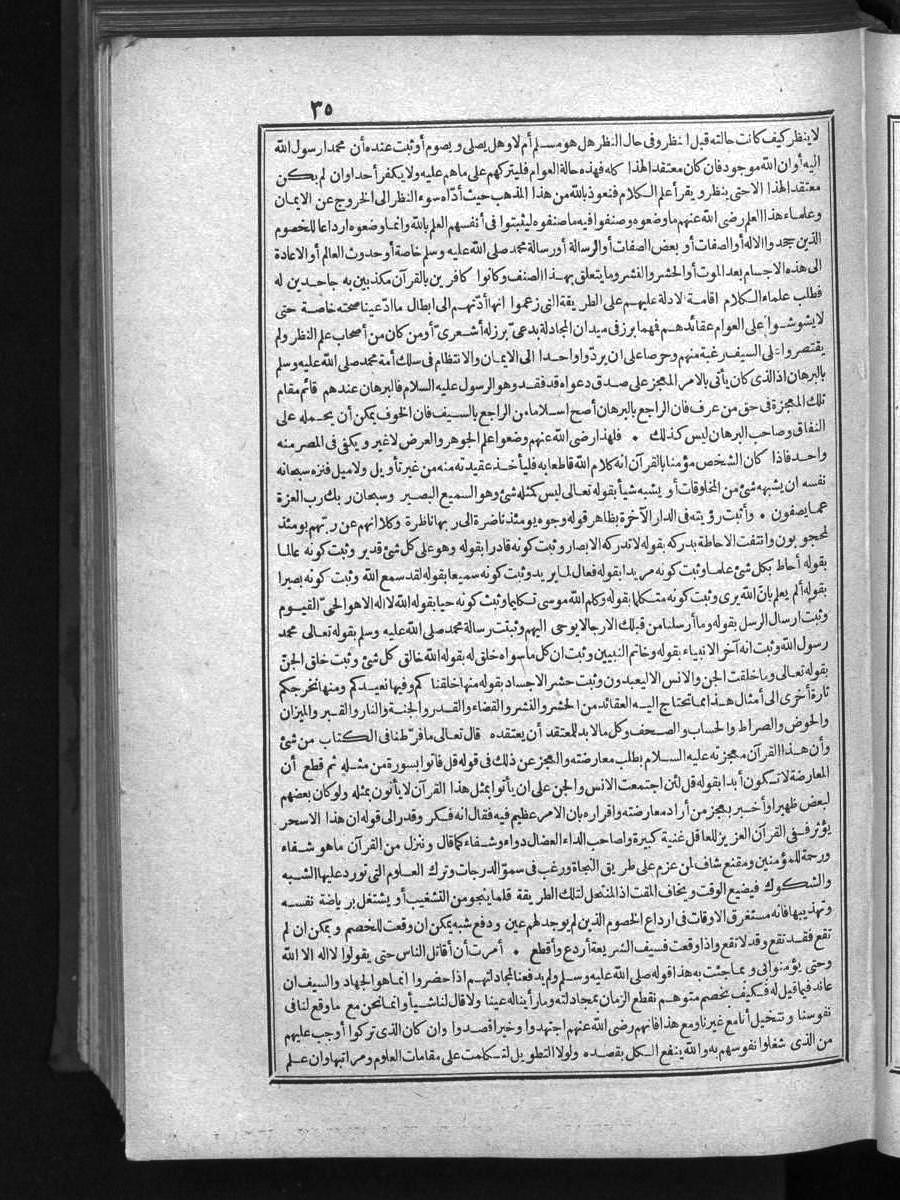 ٣٥
لا ينظر كيف كانت حالته قبل النظر وفى حال النظر هل هو مسلم أم لا وهل يصلى ويصوم أو ثبت عنده أن محمدا رسول الله
اليه أو ان الله موجود فان كان معتقدا لهذا كله فهذه حالة العوام فليتركهم على ما هم عليه ولا يكفر أحدا وان لم يكن
معتقدا لهذا الا حتى ينظر ويقرأ علم الكلام فنعوذ بالله من هذا المذهب حيث أدّاه سوء النظر الى الخروج عن الايمان
وعلماء هذا العلم رضى الله عنهم ما وضعوه وصنفوا فيه ما صنفوه ليثبتوا فى أنفسهم العلم بالله وانما وضعوه ارداعا للخصوم
الذين جحدوا الاله أو الصفات أو بعض الصفات أو الرسالة أو رسالة محمد صلى الله عليه وسلم خاصة أو حدوث العالم أو الاعادة
الى هذه الاجسام بعد الموت أو الحشر والنشر وما يتعلق بهذا الصنف وكانوا كافرين بالقرآن مكذبين به جاحدين له
فطلب علماء الكلام اقامة الادلة عليهم على الطريقة التى زعموا انها أدّتهم الى ابطال ما ادّعينا صحته خاصة حتى
لا يشوشوا على العوام عقائدهم فهما برز فى ميدان المجادلة بدعىّ برز له أشعرىّ أو من كان من أصحاب علم النظر ولم
يقتصروا على السيف رغبة منهم وحرصا على ان يردّوا واحدا الى الايمان والانتظام فى سلك أمة محمد صلى الله عليه وسلم
بالبرهان اذ الذى كان يأتى بالامر المعجز على صدق دعواه قد فقد وهو الرسول عليه السلام فالبرهان عندهم قائم مقام
تلك المعجزة فى حق من عرف فان الراجع بالبرهان أصح اسلاما من الراجع بالسيف فان الخوف يمكن أن يحمله على
النفاق وصاحب البرهان ليس كذلك . فلهذا رضى الله عنهم وضعوا علم الجوهر والعرض لا غير ويكفى فى المصر منه
واحد فاذا كان الشخص مؤمنا بالقرآن انه كلام الله قاطعا به فليأخذ عقيدته منه من غير تأويل ولا ميل فنزه سبحانه
نفسه ان يشبهه شئ من المخلوقات أو يشبه شيأ بقوله تعالى ليس كمثله شئ وهو السميع البصير وسبحان ربك رب العزة
عما يصفون . وأثبت رؤيته فى الدار الآخرة بظاهر قوله وجوه يومئذ ناضرة الى ربها ناظرة وكلا انهم عن ربهم يومئذ
لمحجوبون وانتفت الاحاطة بدركه بقوله لا تدركه الابصار وثبت كونه قادرا بقوله وهو على كل شئ قدير وثبت كونه عالما
بقوله أحاط بكل شئ علما وثبت كونه مريدا بقوله فعال لما يريد وثبت كونه سميعا بقوله لقد سمع الله وثبت كونه بصيرا
بقوله ألم يعلم بانّ الله يرى وثبت كونه متكلما بقوله وكلم الله موسى تكليما وثبت كونه حيا بقوله الله لا اله الا هو الحىّ القيوم
وثبت ارسال الرسل بقوله وما أرسلنا من قبلك الا رجالا يوحى اليهم وثبتت رسالة محمد صلى الله عليه وسلم بقوله تعالى محمد
رسول الله وثبت انه آخر الانبياء بقوله وخاتم النبيين وثبت ان كل ما سواه خلق له بقوله الله خالق كل شئ وثبت خلق الجنّ
بقوله تعالى وما خلقت الجن والانس الا ليعبدون وثبت حشر الاجساد بقوله منها خلقناكم وفيها نعيدكم ومنها نخرجكم
تارة أخرى الى أمثال هذا مما تحتاج اليه العقائد من الحشر والنشر والقضاء والقدر والجنة والنار والقبر والميزان
والحوض والصراط والحساب والصحف وكل ما لا بد للمعتقد أن يعتقده قال تعالى ما فرّطنا فى الكتاب من شئ
وأن هذا القرآن معجزته عليه السلام بطلب معارضته والعجز عن ذلك فى قوله قل فاتوا بسورة من مثله ثم قطع أن
المعارضة لا تكون أبدا بقوله قل لئن اجتمعت الانس والجن على ان يأتوا بمثل هذا القرآن لا يأتون بمثله ولو كان بعضهم
لبعض ظهيرا وأخبر بعجز من أراد معارضته واقراره بان الامر عظيم فيه فقال انه فكر وقدر الى قوله ان هذا الا سحر
يؤثر ففى القرآن العزيز للعاقل غنية كبيرة ولصاحب الداء العضال دواء وشفاء كما قال وننزل من القرآن ما هو شفاء
ورحمة للمؤمنين ومقنع شاف لمن عزم على طريق النجاة ورغب فى سموّ الدرجات وترك العلوم التى تورد عليها الشبه
والشكوك فيضيع الوقت ويخاف المقت اذ المنتحل لتلك الطريقة قلما ينجو من التشغيب أو يشتغل برياضة نفسه
وتهذيبها فانه مستغرق الاوقات فى ارداع الخصوم الذين لم يوجد لهم عين ودفع شبه يمكن ان وقعت للخصم ويمكن ان لم
تقع فقد تقع وقد لا تقع واذا وقعت فسيف الشريعة أردع وأقطع . أمرت أن أقاتل الناس حتى يقولوا لا اله الا الله
وحتى يؤمنوا بى وبما جئت به هذا قوله صلى الله عليه وسلم ولم يدفعنا لمجادلتهم اذا حضروا انما هو الجهاد والسيف ان
عاند فيما قيل له فكيف بخصم متوهم نقطع الزمان بمجادلته وما رأينا له عينا ولا قال لنا شيأ وانما نحن مع ما وقع لنا فى
نفوسنا ونتخيل أنا مع غيرنا ومع هذا فانهم رضى الله عنهم اجتهدوا وخيرا قصدوا وان كان الذى تركوا أوجب عليهم
من الذى شغلوا نفوسهم به والله ينفع الكل بقصده ولولا التطويل لتكلمت على مقامات العلوم ومراتبها وان علم